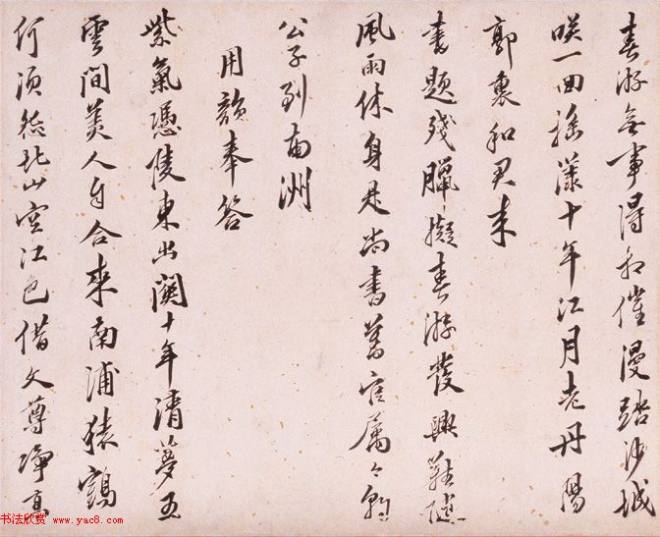 春游無事得相催漫踏沙城
咲一曲搖漾十年江月老丹陽
郭裏和君来
書題殘臘擬春游發興難隨
風雨休身是尚書舊官屬
公子到南洲
用韻奉答
紫氣憑陵東出關十年清夢五
雲間美人自合来南浦猿鶴
何須怨北山江色借文尊净
书法欣赏 www.yac8.com